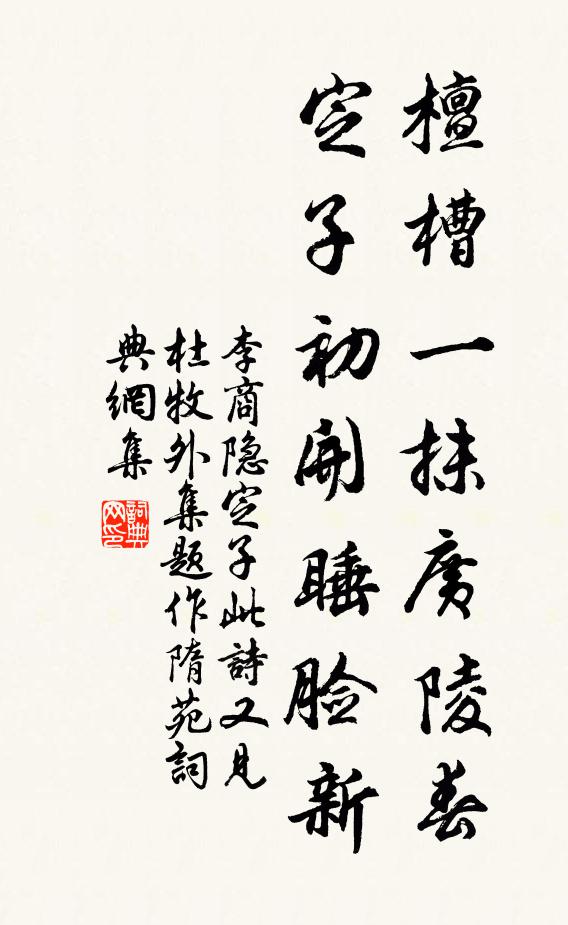 檀槽一抹廣陵春
定子初開睡脸新
李商隐定子此詩又見
杜牧外集题作隋苑詞
典網集
詞典网印